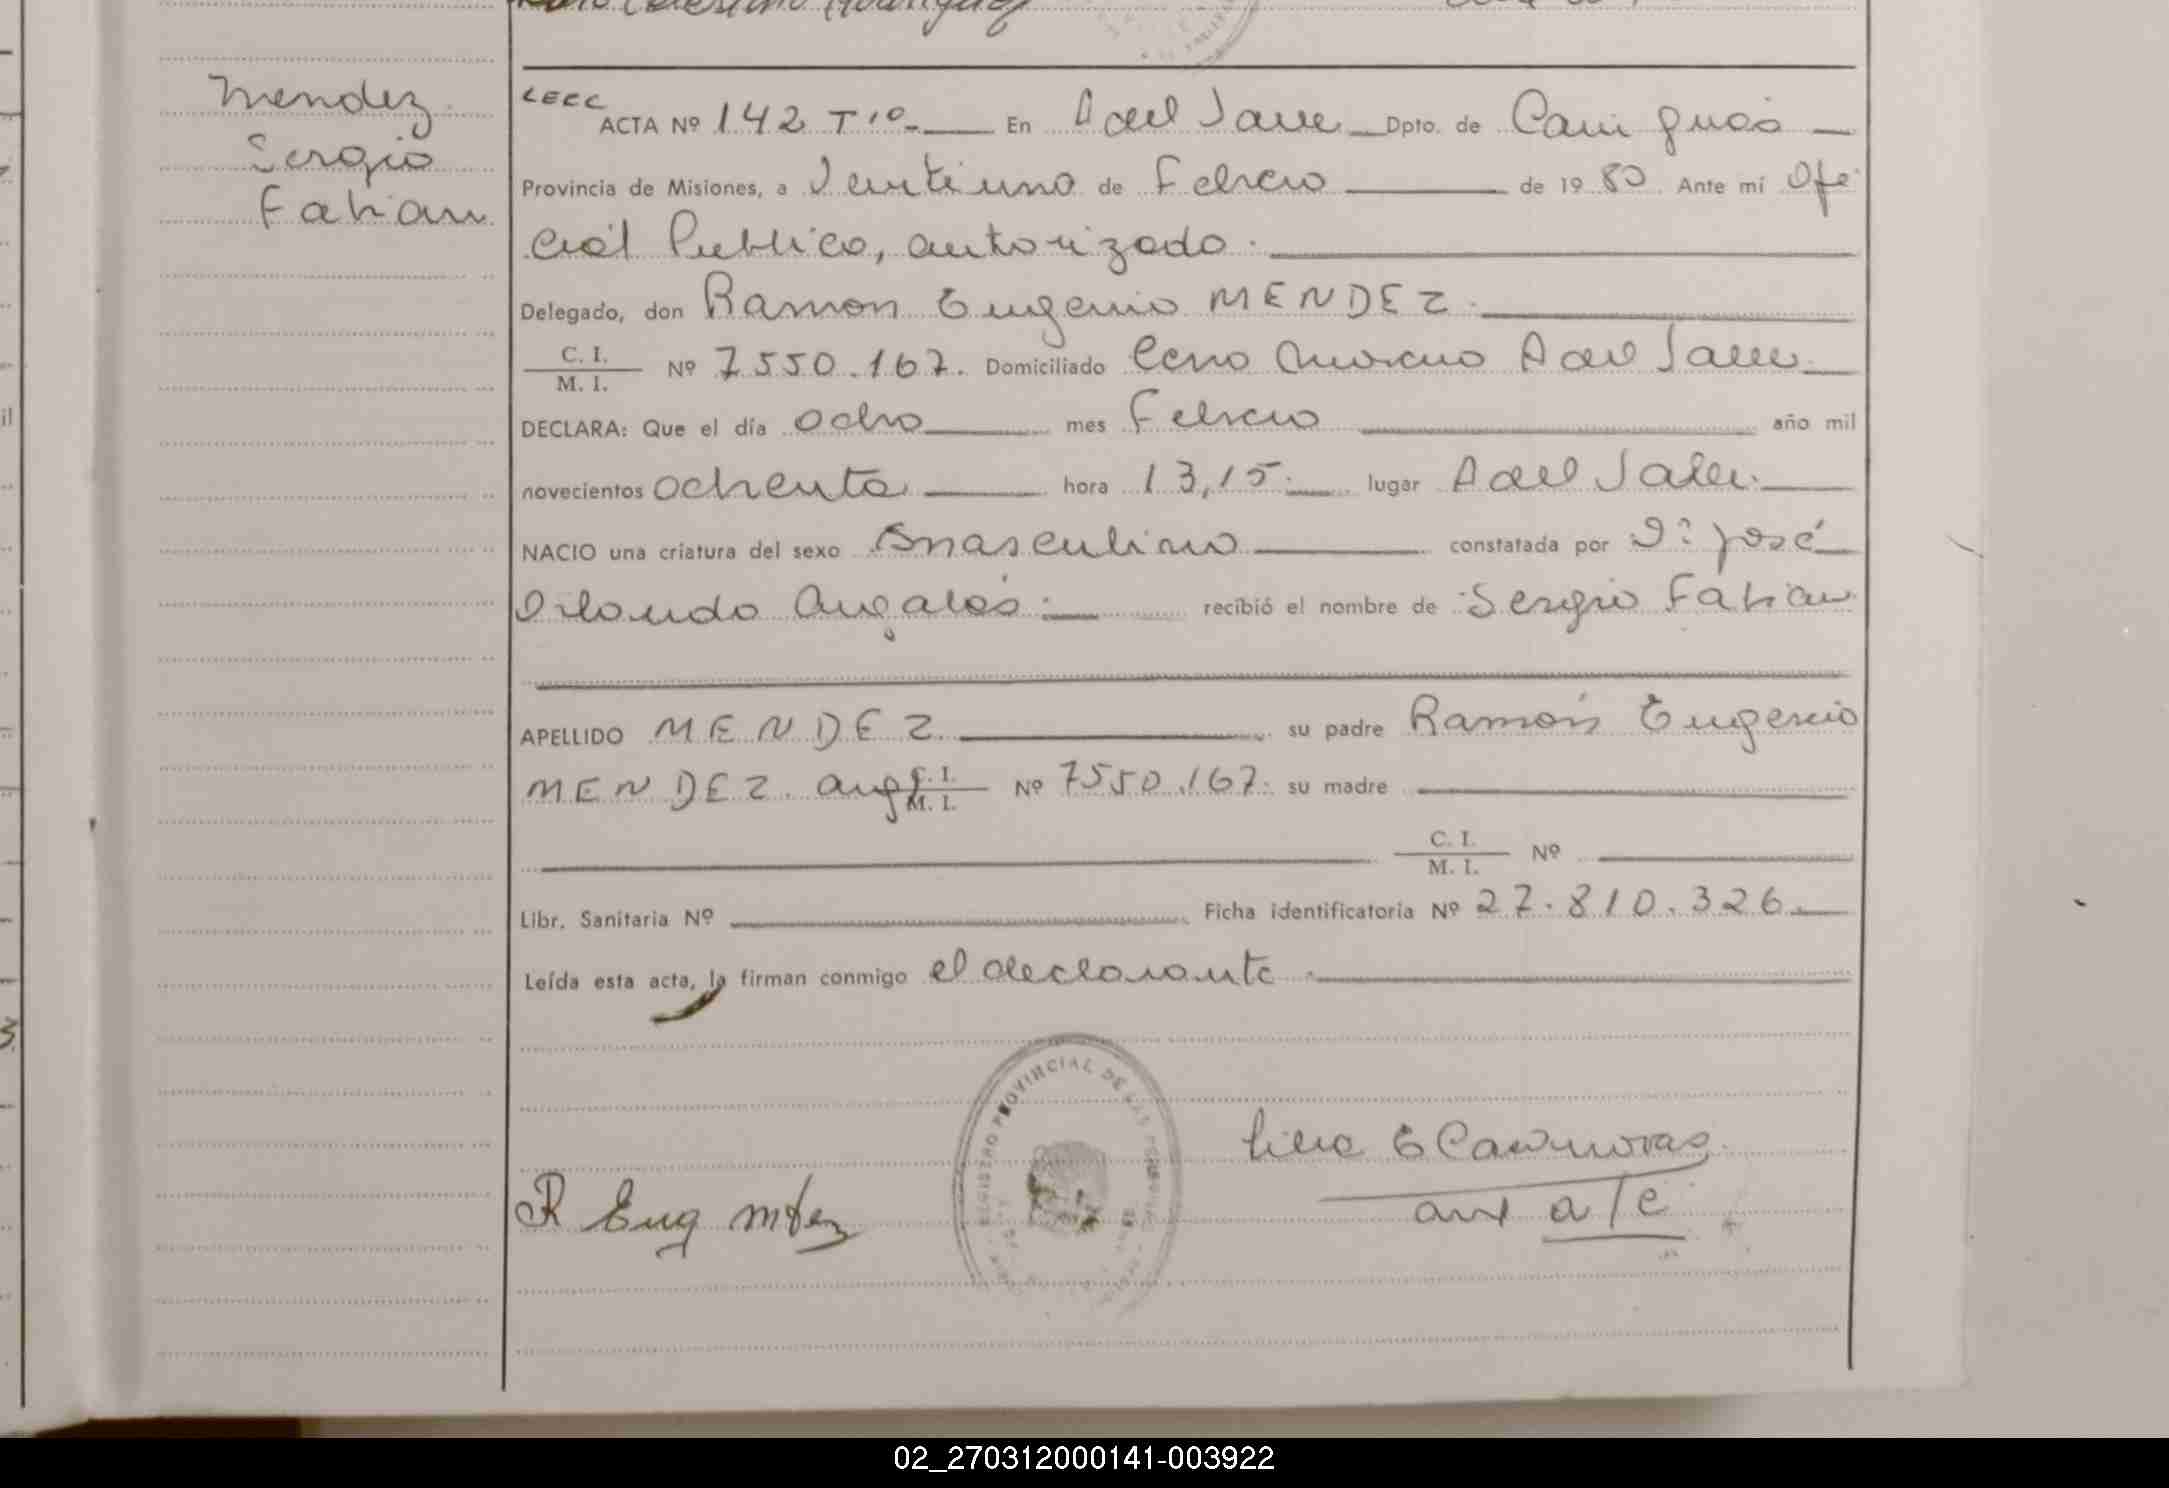 Mendez
Sergio
Fabian
LECC
ACTA Nº 142 Tº 1º En A del Valle Dpto. de Cainguás
Provincia de Misiones, a Veintiuno de Febrero de 1980 Ante mí Ofi
cial Publico, autorizado.
Delegado, don Ramon Eugenio MENDEZ.
C. I.
M. I. Nº 7550.167. Domiciliado Cerro Moreno A del Valle
DECLARA: Que el día ocho mes Febrero año mil
novecientos ochenta hora 13,15. lugar A del Valle.
NACIO una criatura del sexo masculino constatada por Dº José
Orlando recibió el nombre de Sergio Fabian
APELLIDO MENDEZ su padre Ramón Eugenio
MENDEZ. arg C. I.
M. I. Nº 7550.167. su madre
C. I.
M. I. Nº
Libr. Sanitaria Nº Ficha identificatoria Nº 27.810.326.
Leída esta acta, la firman conmigo el declarante.
REGISTRO PROVINCIAL DE LAS PERSONAS
R Eug
E Casanovas
aux a/c
02_270312000141-003922